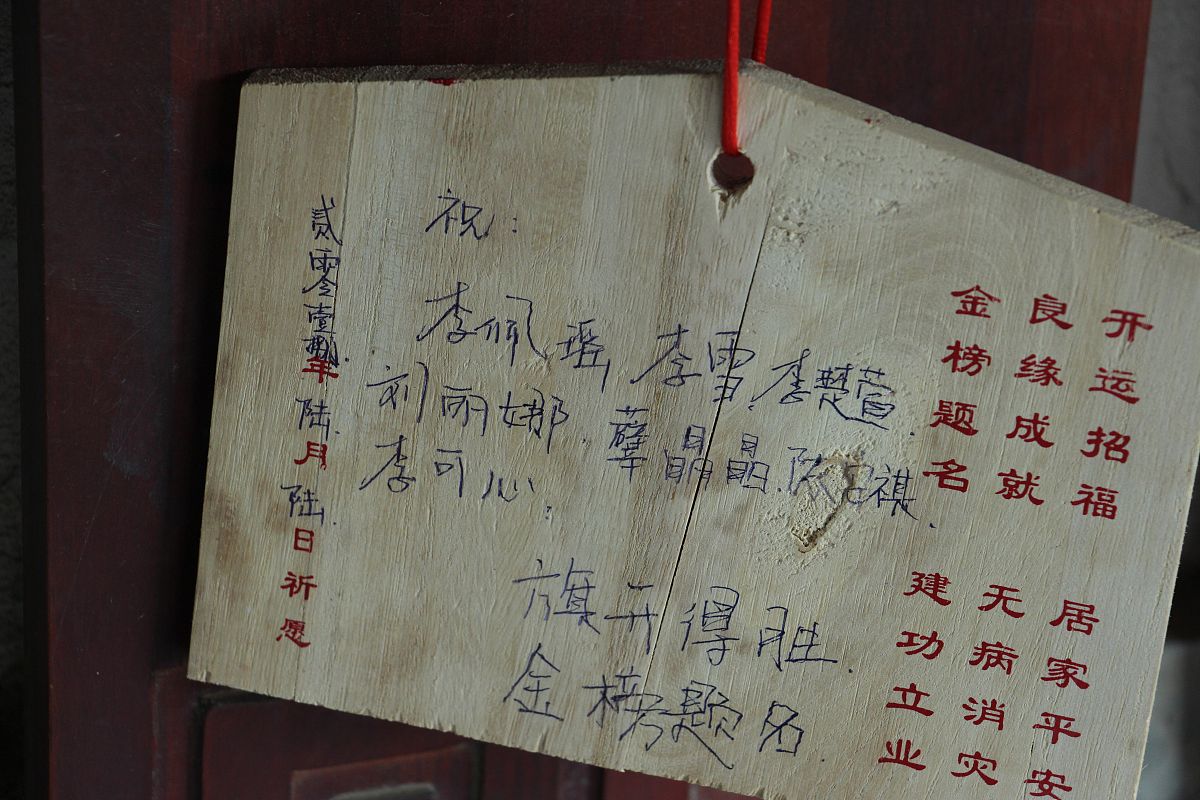 开运招福 居家平安
良缘成就 无病消灾
金榜题名 建功立业
祝：
李佩瑶 李雪 李慧萱.
刘丽娜. 薛晶晶.陈 祺.
李可心：
旗开得胜.
金榜题名
贰零壹 年陆月陆日祈愿